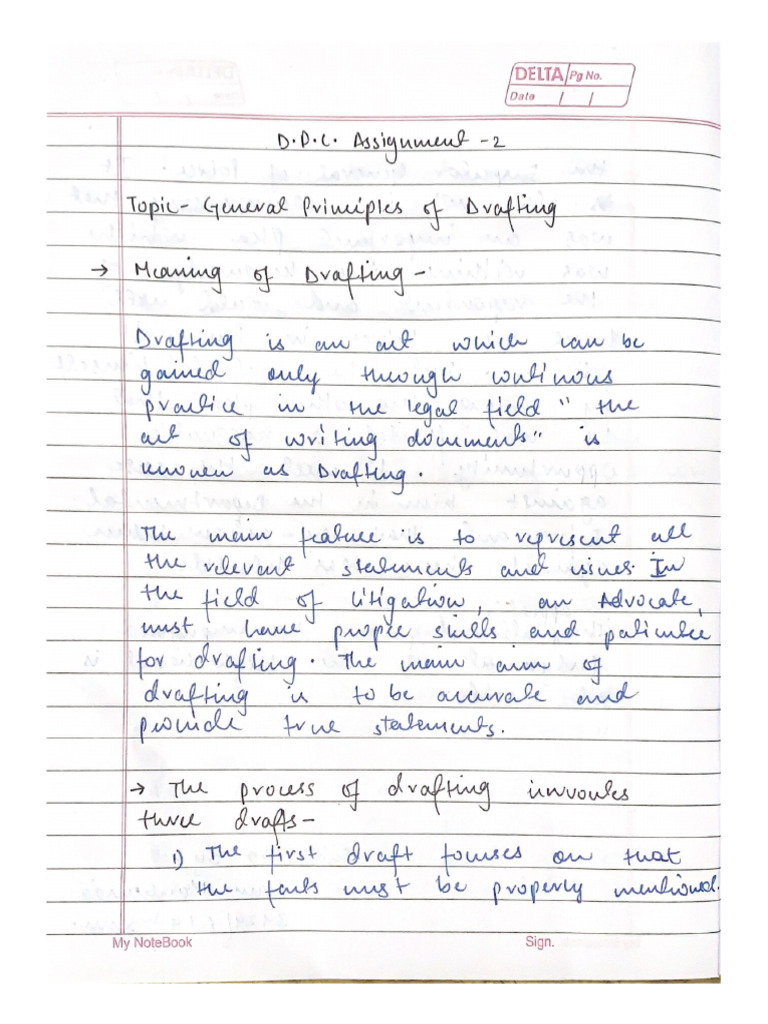 DELTA Pg No.
Date / /
D.P.C. Assignment -2
Topic- General Principles of Drafting
→ Meaning of Drafting -
Drafting is an art which can be
gained only through continous
practice in the legal field " the
art of writing documents" is
known as Drafting.
The main feature is to represent all
the relevant statements and issues. In
the field of litigation, an Advocate,
must have proper skills and patience
for drafting. The main aim of
drafting is to be accurate and
provide true statements.
→ The process of drafting invovles
three drafts-
1) The first draft focuses on that
the facts must be properly mentioned.
My NoteBook Sign.